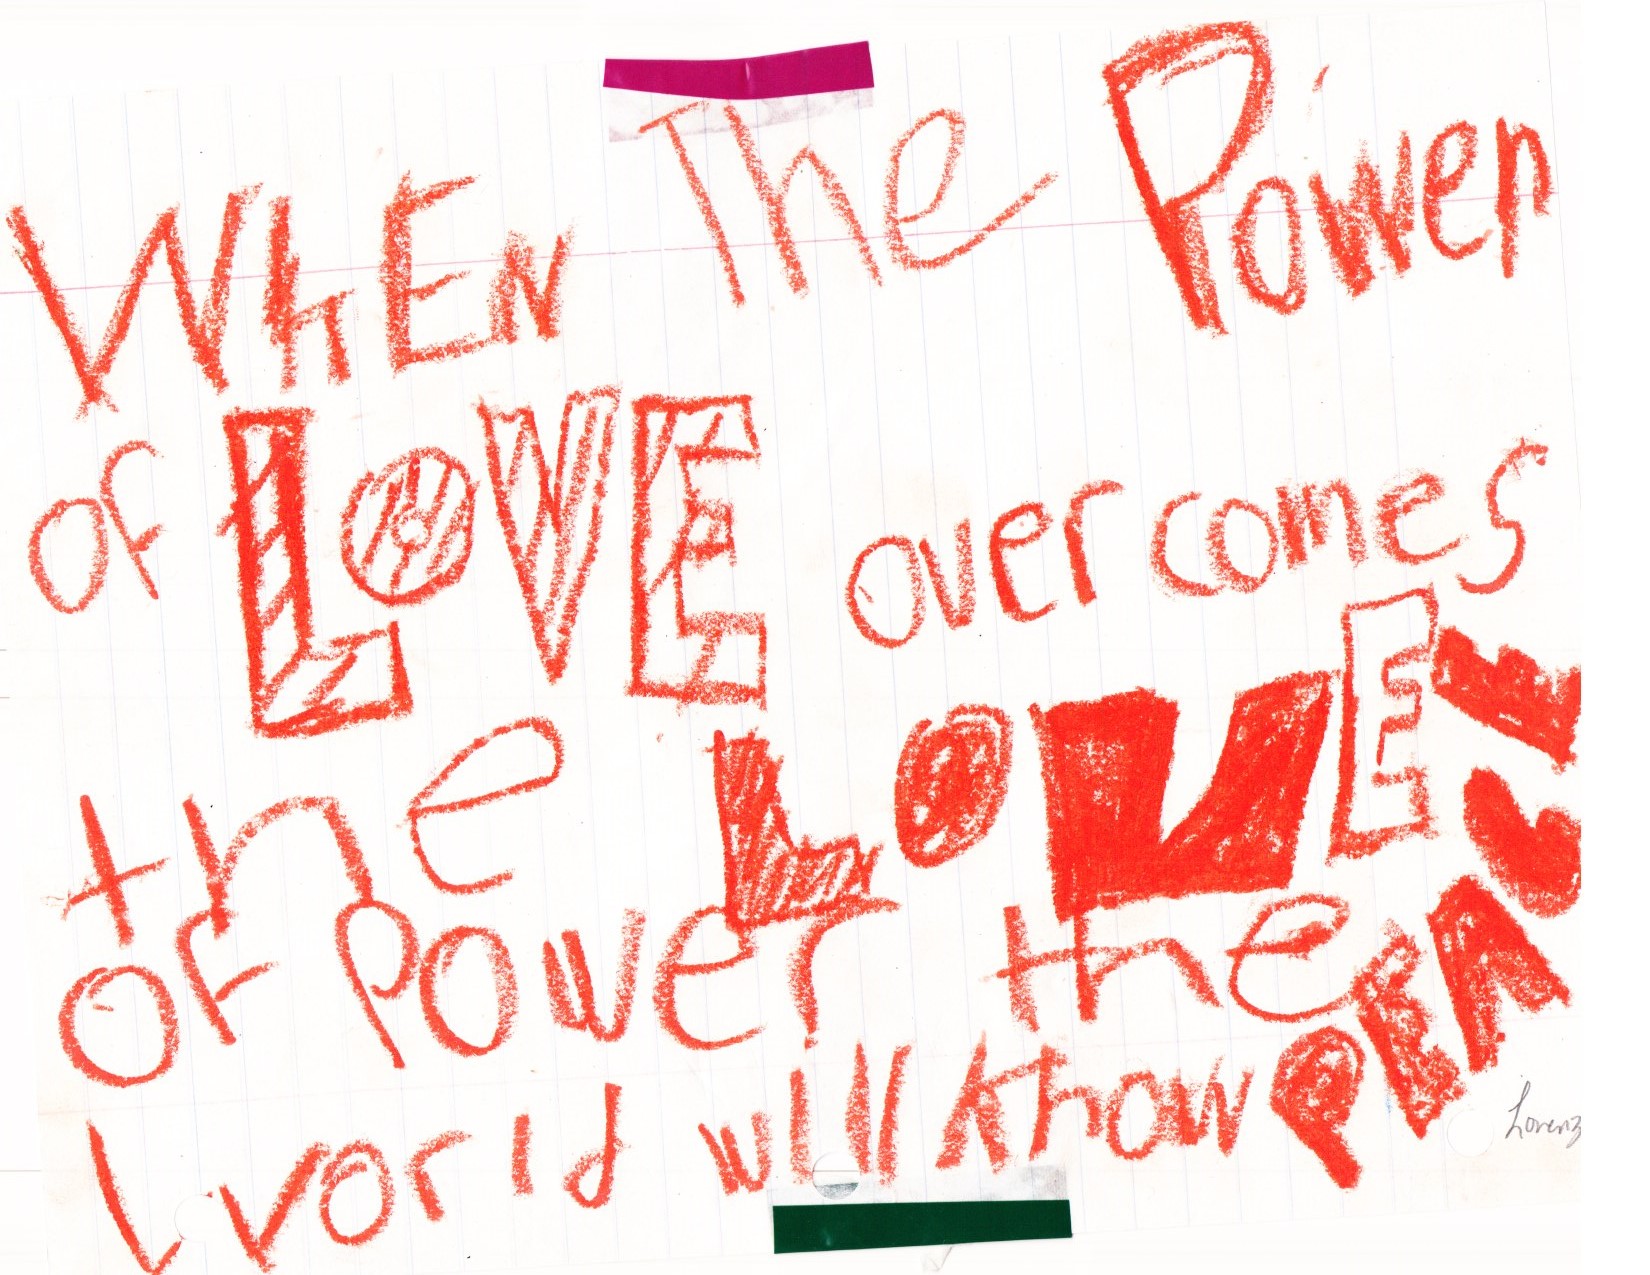 WHEN The Power
of LOVE overcomes
the LOVE
of Power the
world will know PEACE
Lorenz